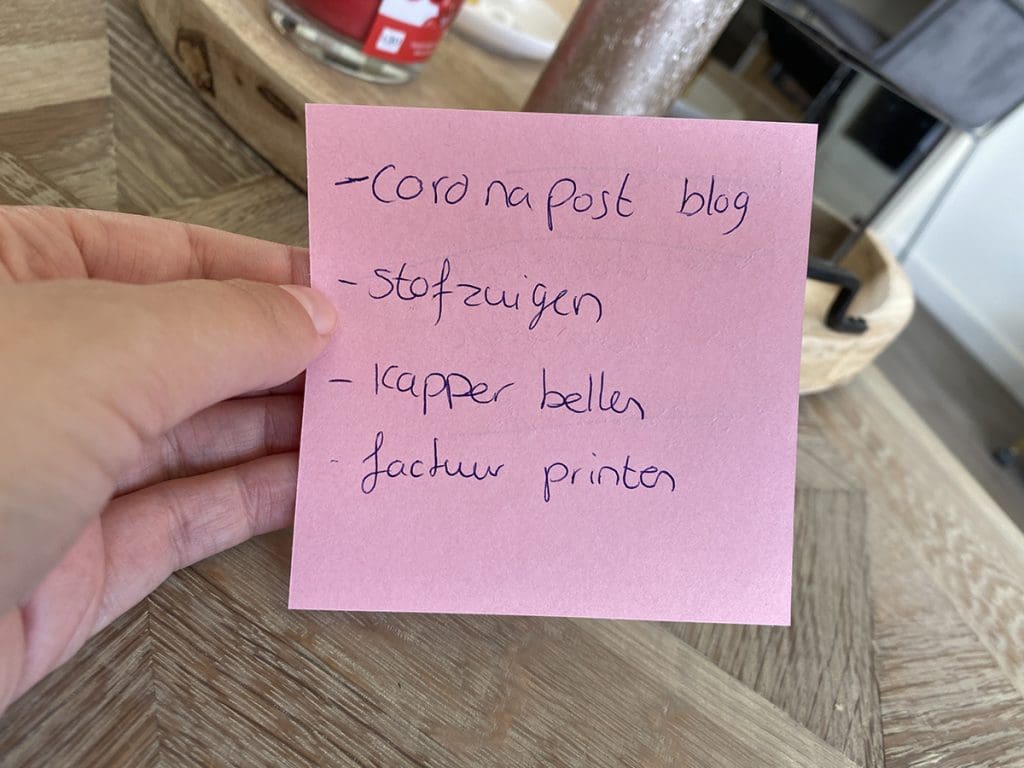 - Coronapost blog
- stofzuigen
- kapper bellen
- factuur printen